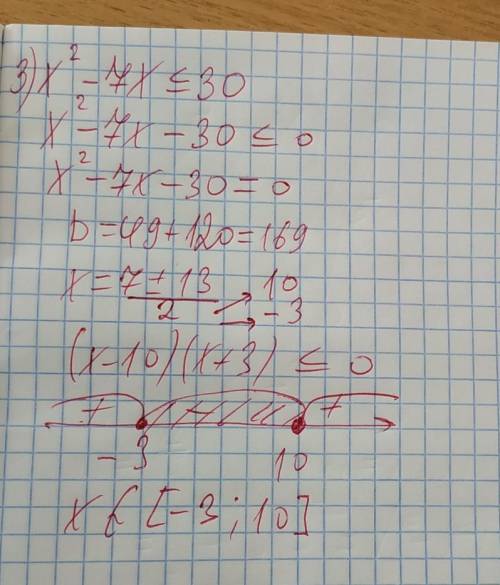 3) x² - 7x ≤ 30
x² - 7x - 30 ≤ 0
x² - 7x - 30 = 0
D = 49 + 120 = 169
x = (7 ± 13)/2 → 10
→ -3
(x - 10)(x + 3) ≤ 0
+ - +
-3 10
x ∈ [-3; 10]